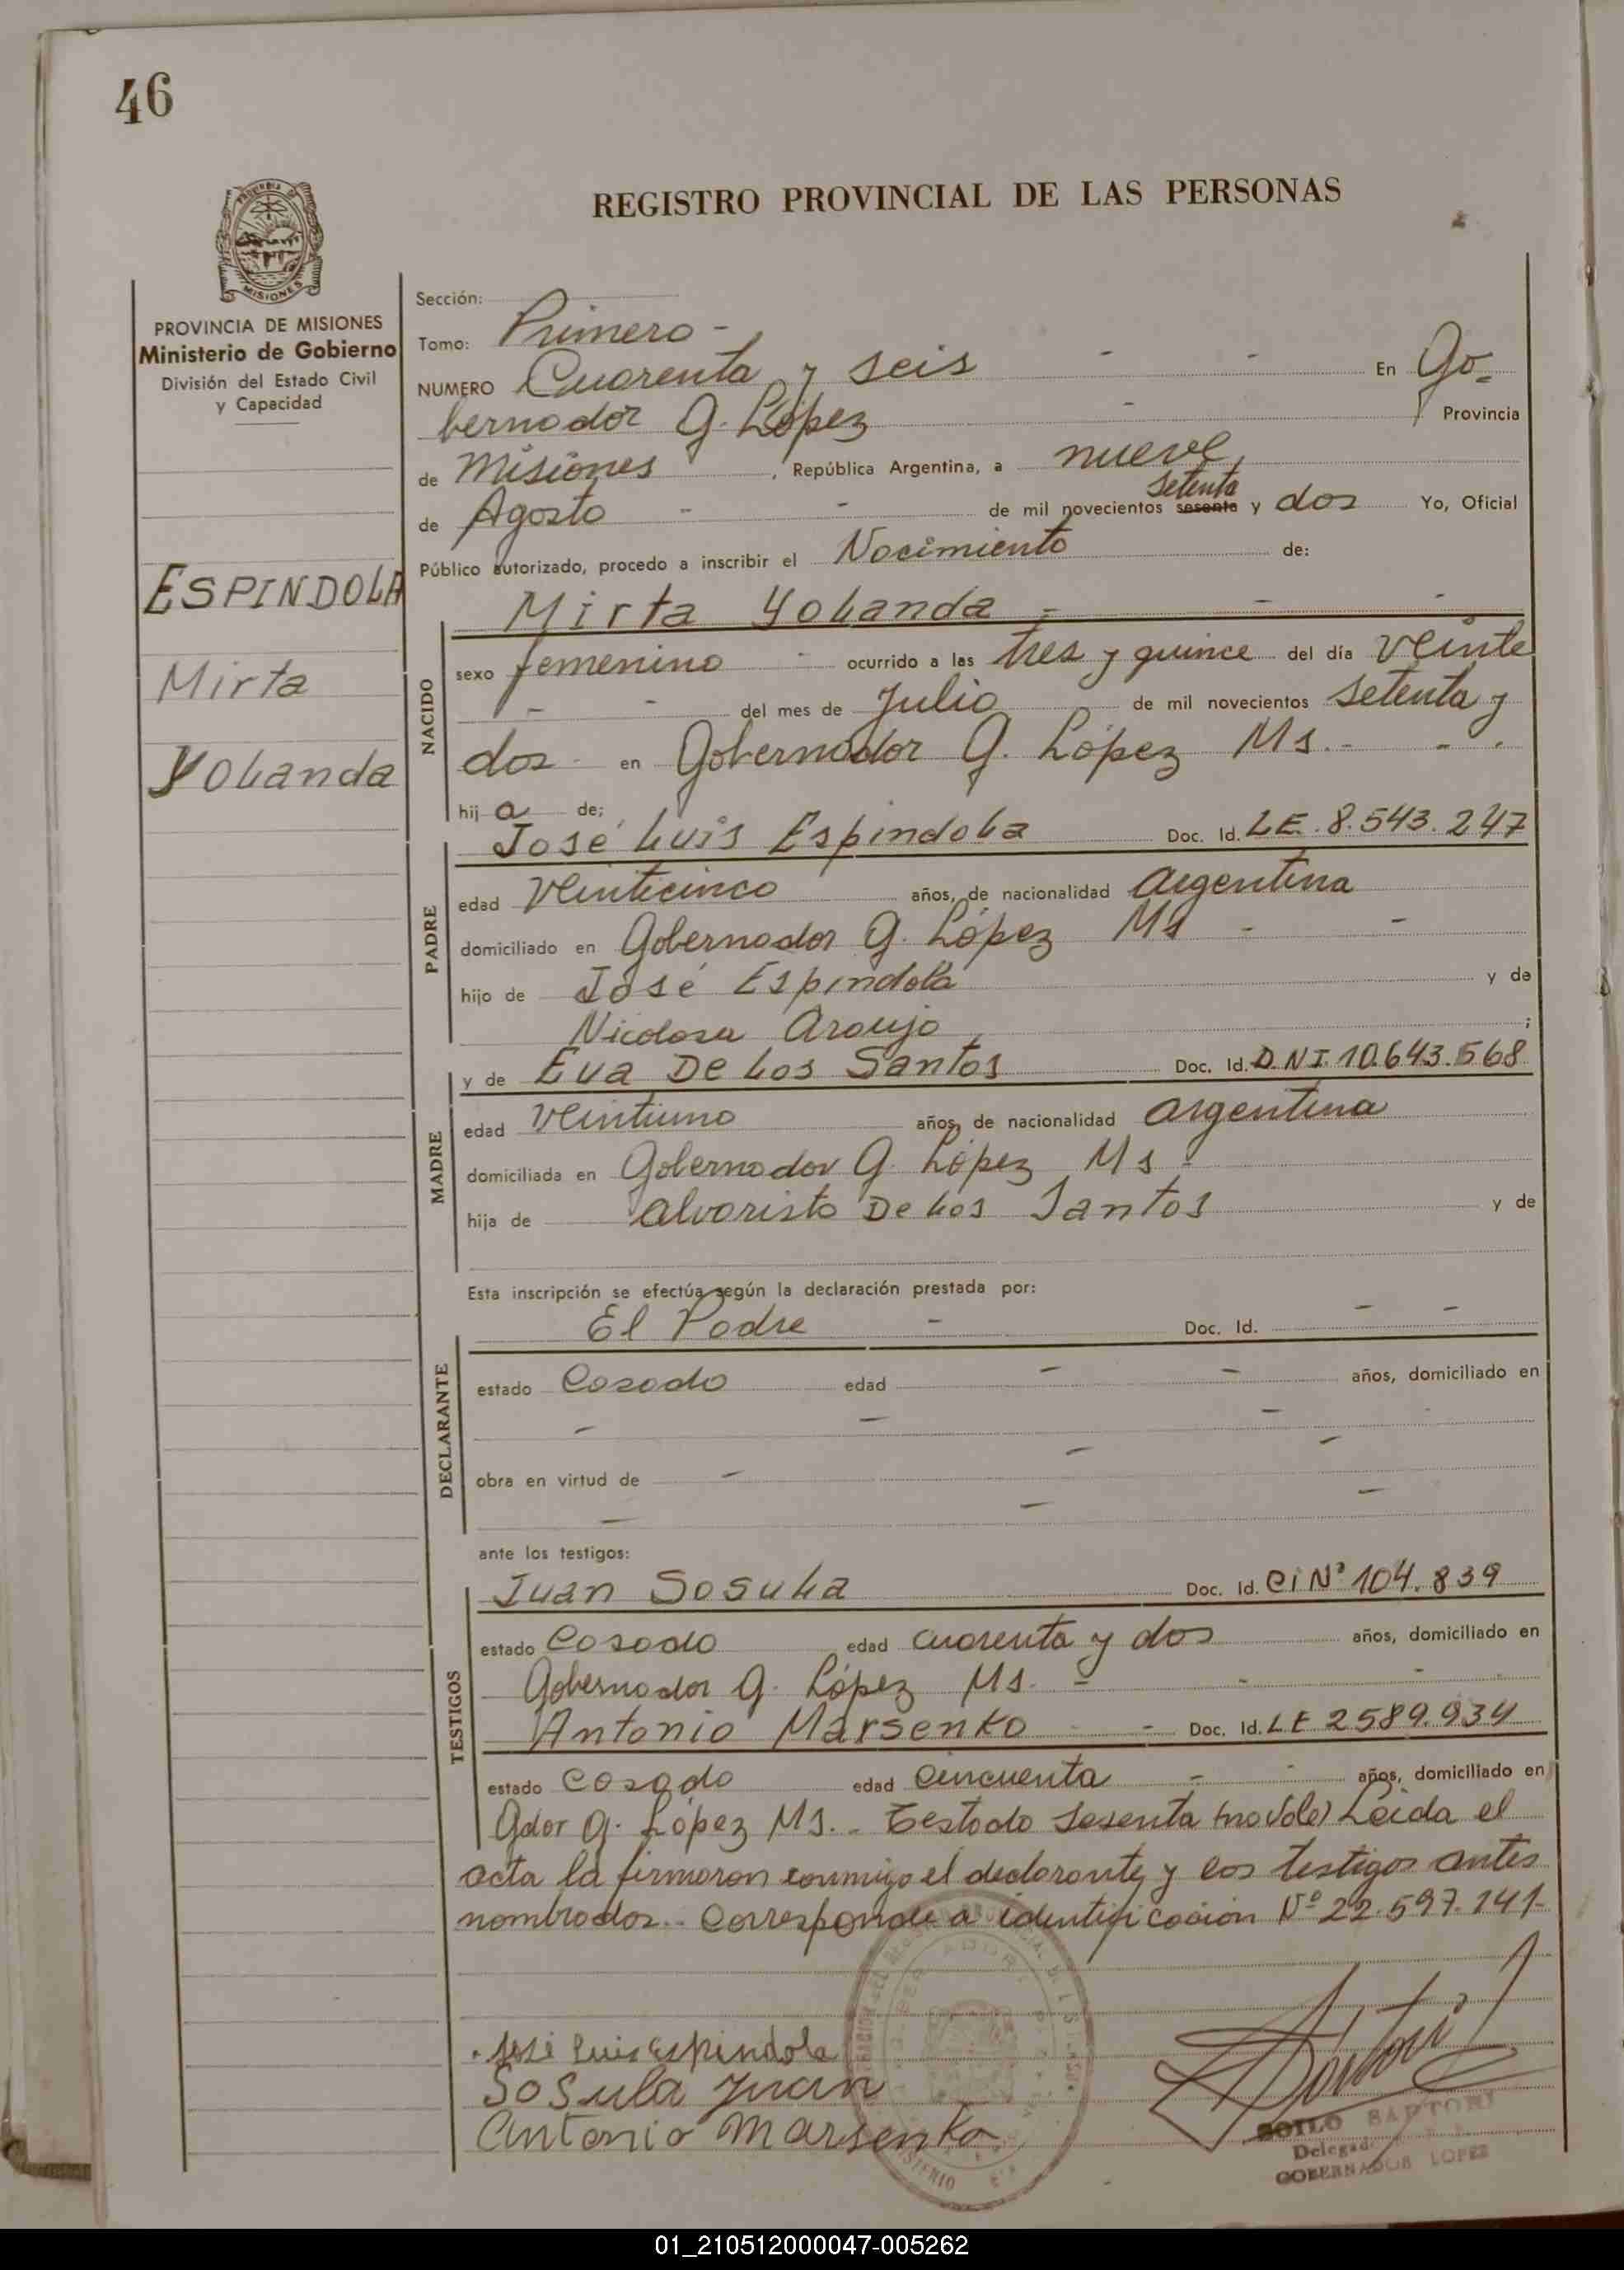 46
REGISTRO PROVINCIAL DE LAS PERSONAS
PROVINCIA DE
MISIONES
PROVINCIA DE MISIONES
Ministerio de Gobierno
División del Estado Civil
y Capacidad
ESPINDOLA
Mirta
Yolanda
Sección:
Tomo: Primero -
NUMERO Cuarenta y seis - - En Go-
bernador G. López - Provincia
de Misiones, República Argentina, a nueve
setenta
de Agosto - - de mil novecientos sesenta y dos Yo, Oficial
Público autorizado, procedo a inscribir el Nacimiento de:
Mirta Yolanda - - -
NACIDO
sexo femenino - ocurrido a las tres y quince del día veinte
- - del mes de Julio de mil novecientos setenta y
dos - en Gobernador G. López Ms. - - -
hij a de;
José Luis Espindola Doc. Id. L.E. 8.543.247
PADRE
edad veinticinco años, de nacionalidad argentina
domiciliado en Gobernador G. López Ms - -
hijo de José Espindola y de
Nicolasa Araujo ;
y de Eva De Los Santos Doc. Id. D.N.I. 10.643.568
MADRE
edad veintiuno años, de nacionalidad argentina
domiciliada en Gobernador G. López Ms -
hija de Alvaristo De Los Santos y de
Esta inscripción se efectúa según la declaración prestada por:
El Padre - Doc. Id. - -
DECLARANTE
estado Casado edad - - años, domiciliado en
- - -
obra en virtud de - - -
- - -
ante los testigos:
Juan Sosula Doc. Id. CI Nº 104.839
TESTIGOS
estado Casado edad cuarenta y dos años, domiciliado en
Gobernador G. López Ms. - - -
Antonio Marsenko - - Doc. Id. LE 2589.934
estado Casado edad cincuenta - - años, domiciliado en
Gdor G. López Ms. - Testado sesenta (no vale) Leida el
acta la firmaron conmigo el declarante y los testigos antes
nombrados.. Corresponde a identificación Nº 22.597.141-
José Luis Espindola
Sosula Juan
Antonio Marsenko
Sartori
SOILO SARTORI
Delegado
GOBERNADOR LOPEZ
01_210512000047-005262